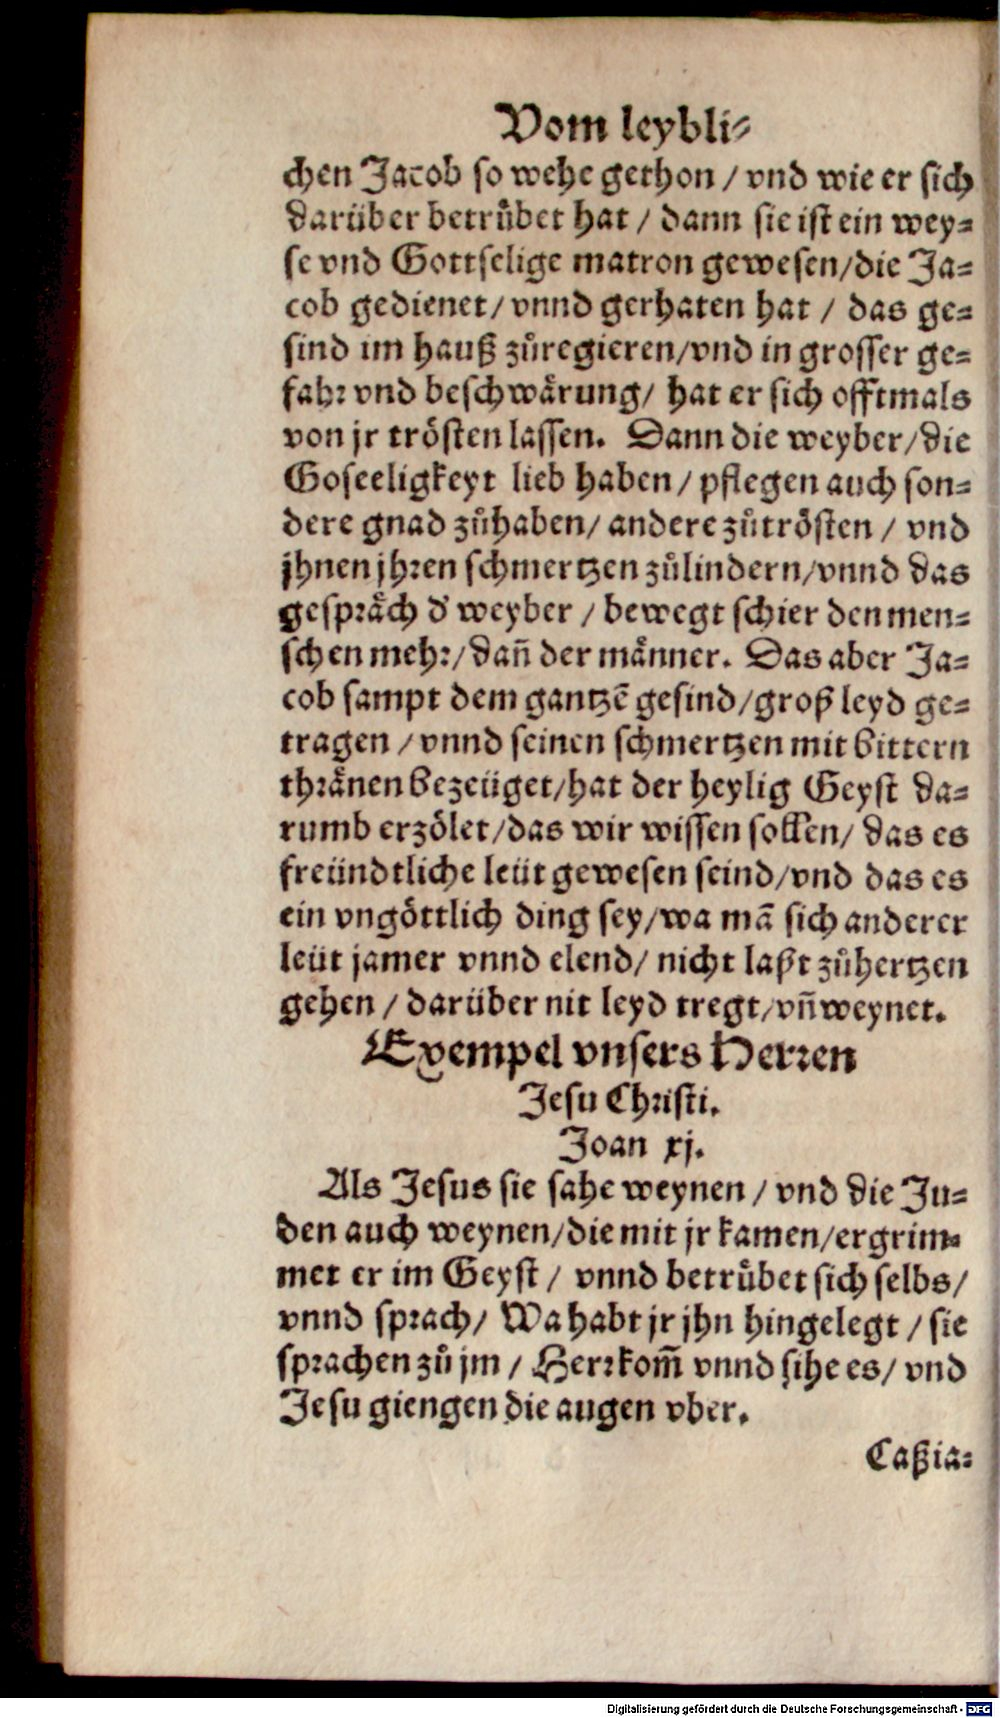 Vom leybli⸗
chen Jacob so wehe gethon / vnd wie er sich
darüber betruͤbet hat / dann sie ist ein wey⸗
se vnd Gottselige matron gewesen/die Ja⸗
cob gedienet/ vnnd gerhaten hat / das ge⸗
sind im hauß zuͦregieren/vnd in grosser ge⸗
fahr vnd beschwaͤrung/ hat er sich offtmals
von jr troͤsten lassen. Dann die weyber/die
Goseeligkeyt lieb haben / pflegen auch son⸗
dere gnad zuͦhaben/ andere zuͦtroͤsten / vnd
jhnen jhren schmertzen zuͦlindern/vnnd das
gespraͤch d' weyber / bewegt schier den men⸗
schen mehr/dañ der maͤnner. Das aber Ja⸗
cob sampt dem gantzē gesind/groß leyd ge⸗
tragen / vnnd seinen schmertzen mit bittern
thraͤnen bezeüget/hat der heylig Geyst da⸗
rumb erzoͤlet/das wir wissen sollen/ das es
freündtliche leüt gewesen seind/vnd das es
ein vngoͤttlich ding sey/wa mā sich anderer
leüt jamer vnnd elend/ nicht laßt zuͦhertzen
gehen / darüber nit leyd tregt/vñ weynet.
Exempel vnsers Herren
Jesu Christi.
Joan xj.
Als Jesus sie sahe weynen / vnd die Ju⸗
den auch weynen/die mit jr kamen/ergrim⸗
met er im Geyst / vnnd betruͤbet sich selbs/
vnnd sprach/ Wa habt jr jhn hingelegt / sie
sprachen zuͦ jm / Herr kom̃ vnnd sihe es/ vnd
Jesu giengen die augen vber.
Caßia⸗
Digitalisierung gefördert durch die Deutsche Forschungsgemeinschaft - DFG